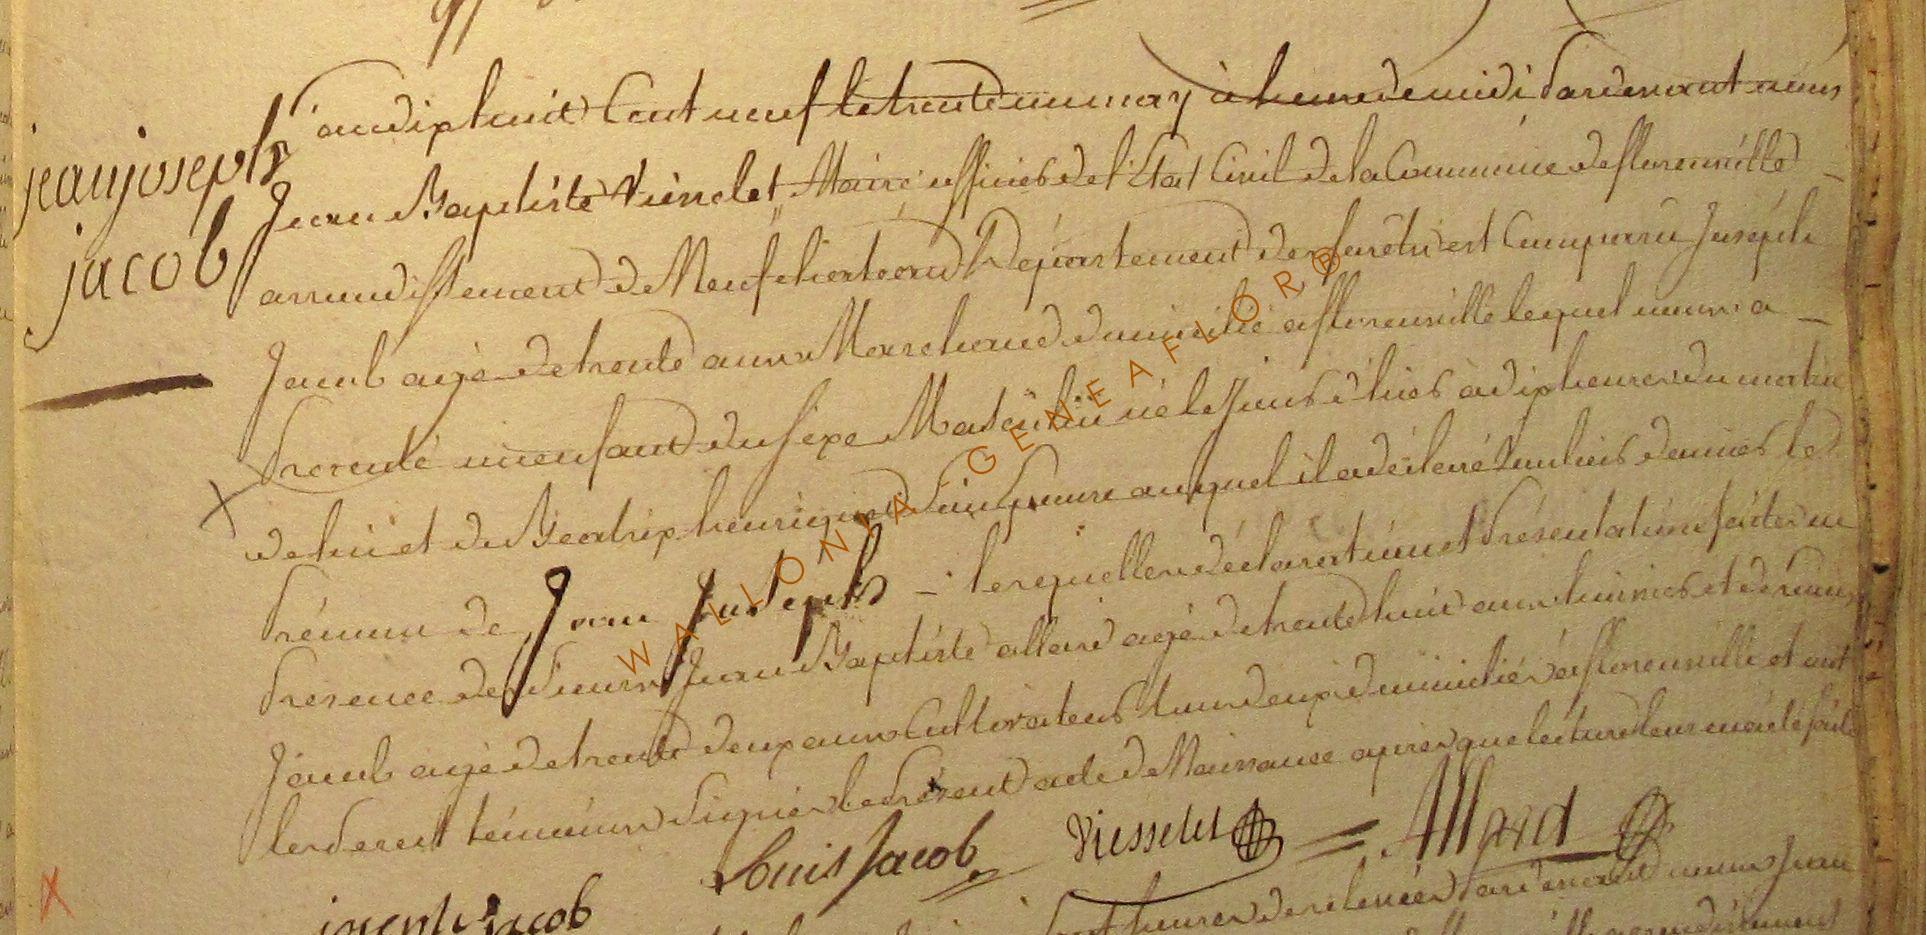 jean joseph
jacob
L'an dix huit Cent neuf le trente un may à heure de midi Pardevant nous
Jean Baptiste Viesslet Maire officier de l'Etat Civil de la Commune de florenville
arrondissement de Neufchateau Département des forêts est Comparu Joseph
Jacob agé de trente ans Marchand domicilié a florenville lequel nous a
Presenté un enfant du sexe Masculin né le Jour d'hier à dix heures du matin
de lui et de Beatrix henriquet Son auquel il a déclaré vouloir donner le
Prénom de Jean Joseph - lesquelles déclaration et Présentation faites en
Presence des Sieurs Jean Baptiste allard agé de trente huit ans huissier et de Louis
Jacob agé de trente deux ans Cultivateur tous deux domiciliés à florenville et ont
les Pere et témoins Signés le Présent acte de Naissance apres que lecture leur en a été faite
Louis Jacob Viesselet Allard
joseph jacob
heures de relevée Pardevant nous Jean
arrondissement
WALLONIA-GENEAFLORB